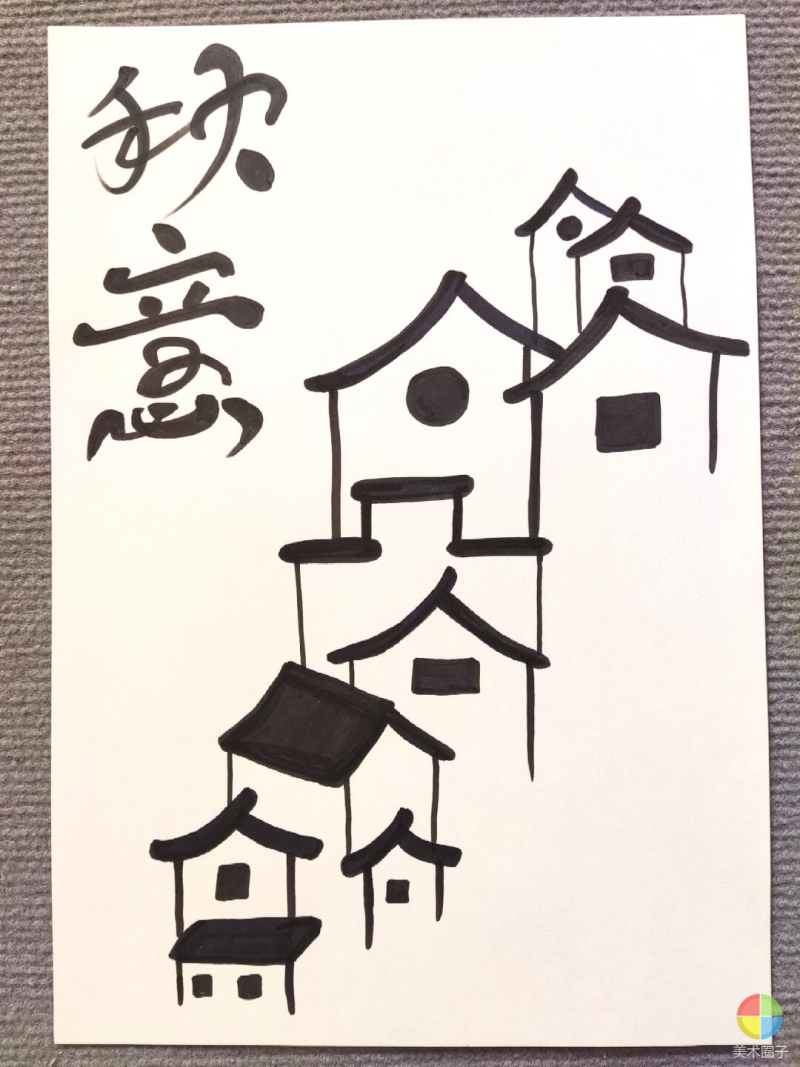 秋
意
美术圈子